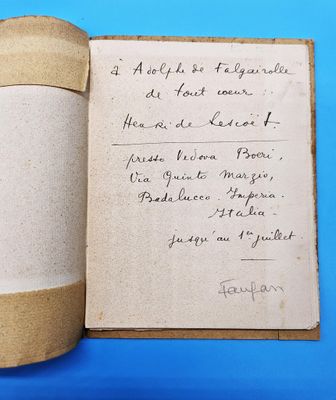 à Adolphe de Falgairolle
de tout coeur :
Henri de Lescoët.
presso Vedova Boeri,
Via Quinto Marzio,
Badalucco. Imperia.
Italia -
jusqu'au 1er juillet.